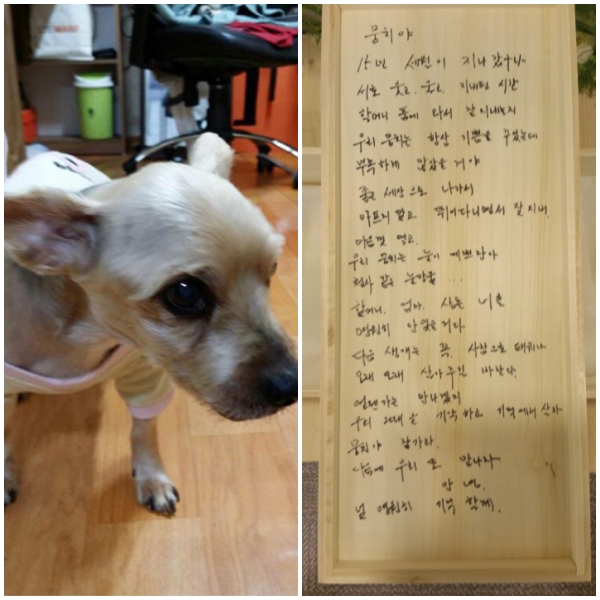 뭉치야
15년 세월이 지나갔구나
서로 웃고, 웃고, 지내던 시간
할머니 품에 와서 잘 지내는지
우리 뭉치는 항상 기쁨을 주었는데
부족하게 많았을거야
좋은 세상으로 나가서
아프지 말고 뛰어다니면서 잘지내.
마음껏 먹고.
우리 뭉치는 눈이 예쁘잖아
천사 같은 눈망울 ...
할머니. 엄마. 삼촌 너를
영원히 안잊을거다
다음 생에는 꼭. 사람으로 태어나
오래 오래 살아주길 바란다.
언젠가는 만나겠지
우리 그때를 기약하고 기억에서 살자
뭉치야 잘가라.
다음에 우리 또 만나자
안녕.
널 영원히 기억할게.